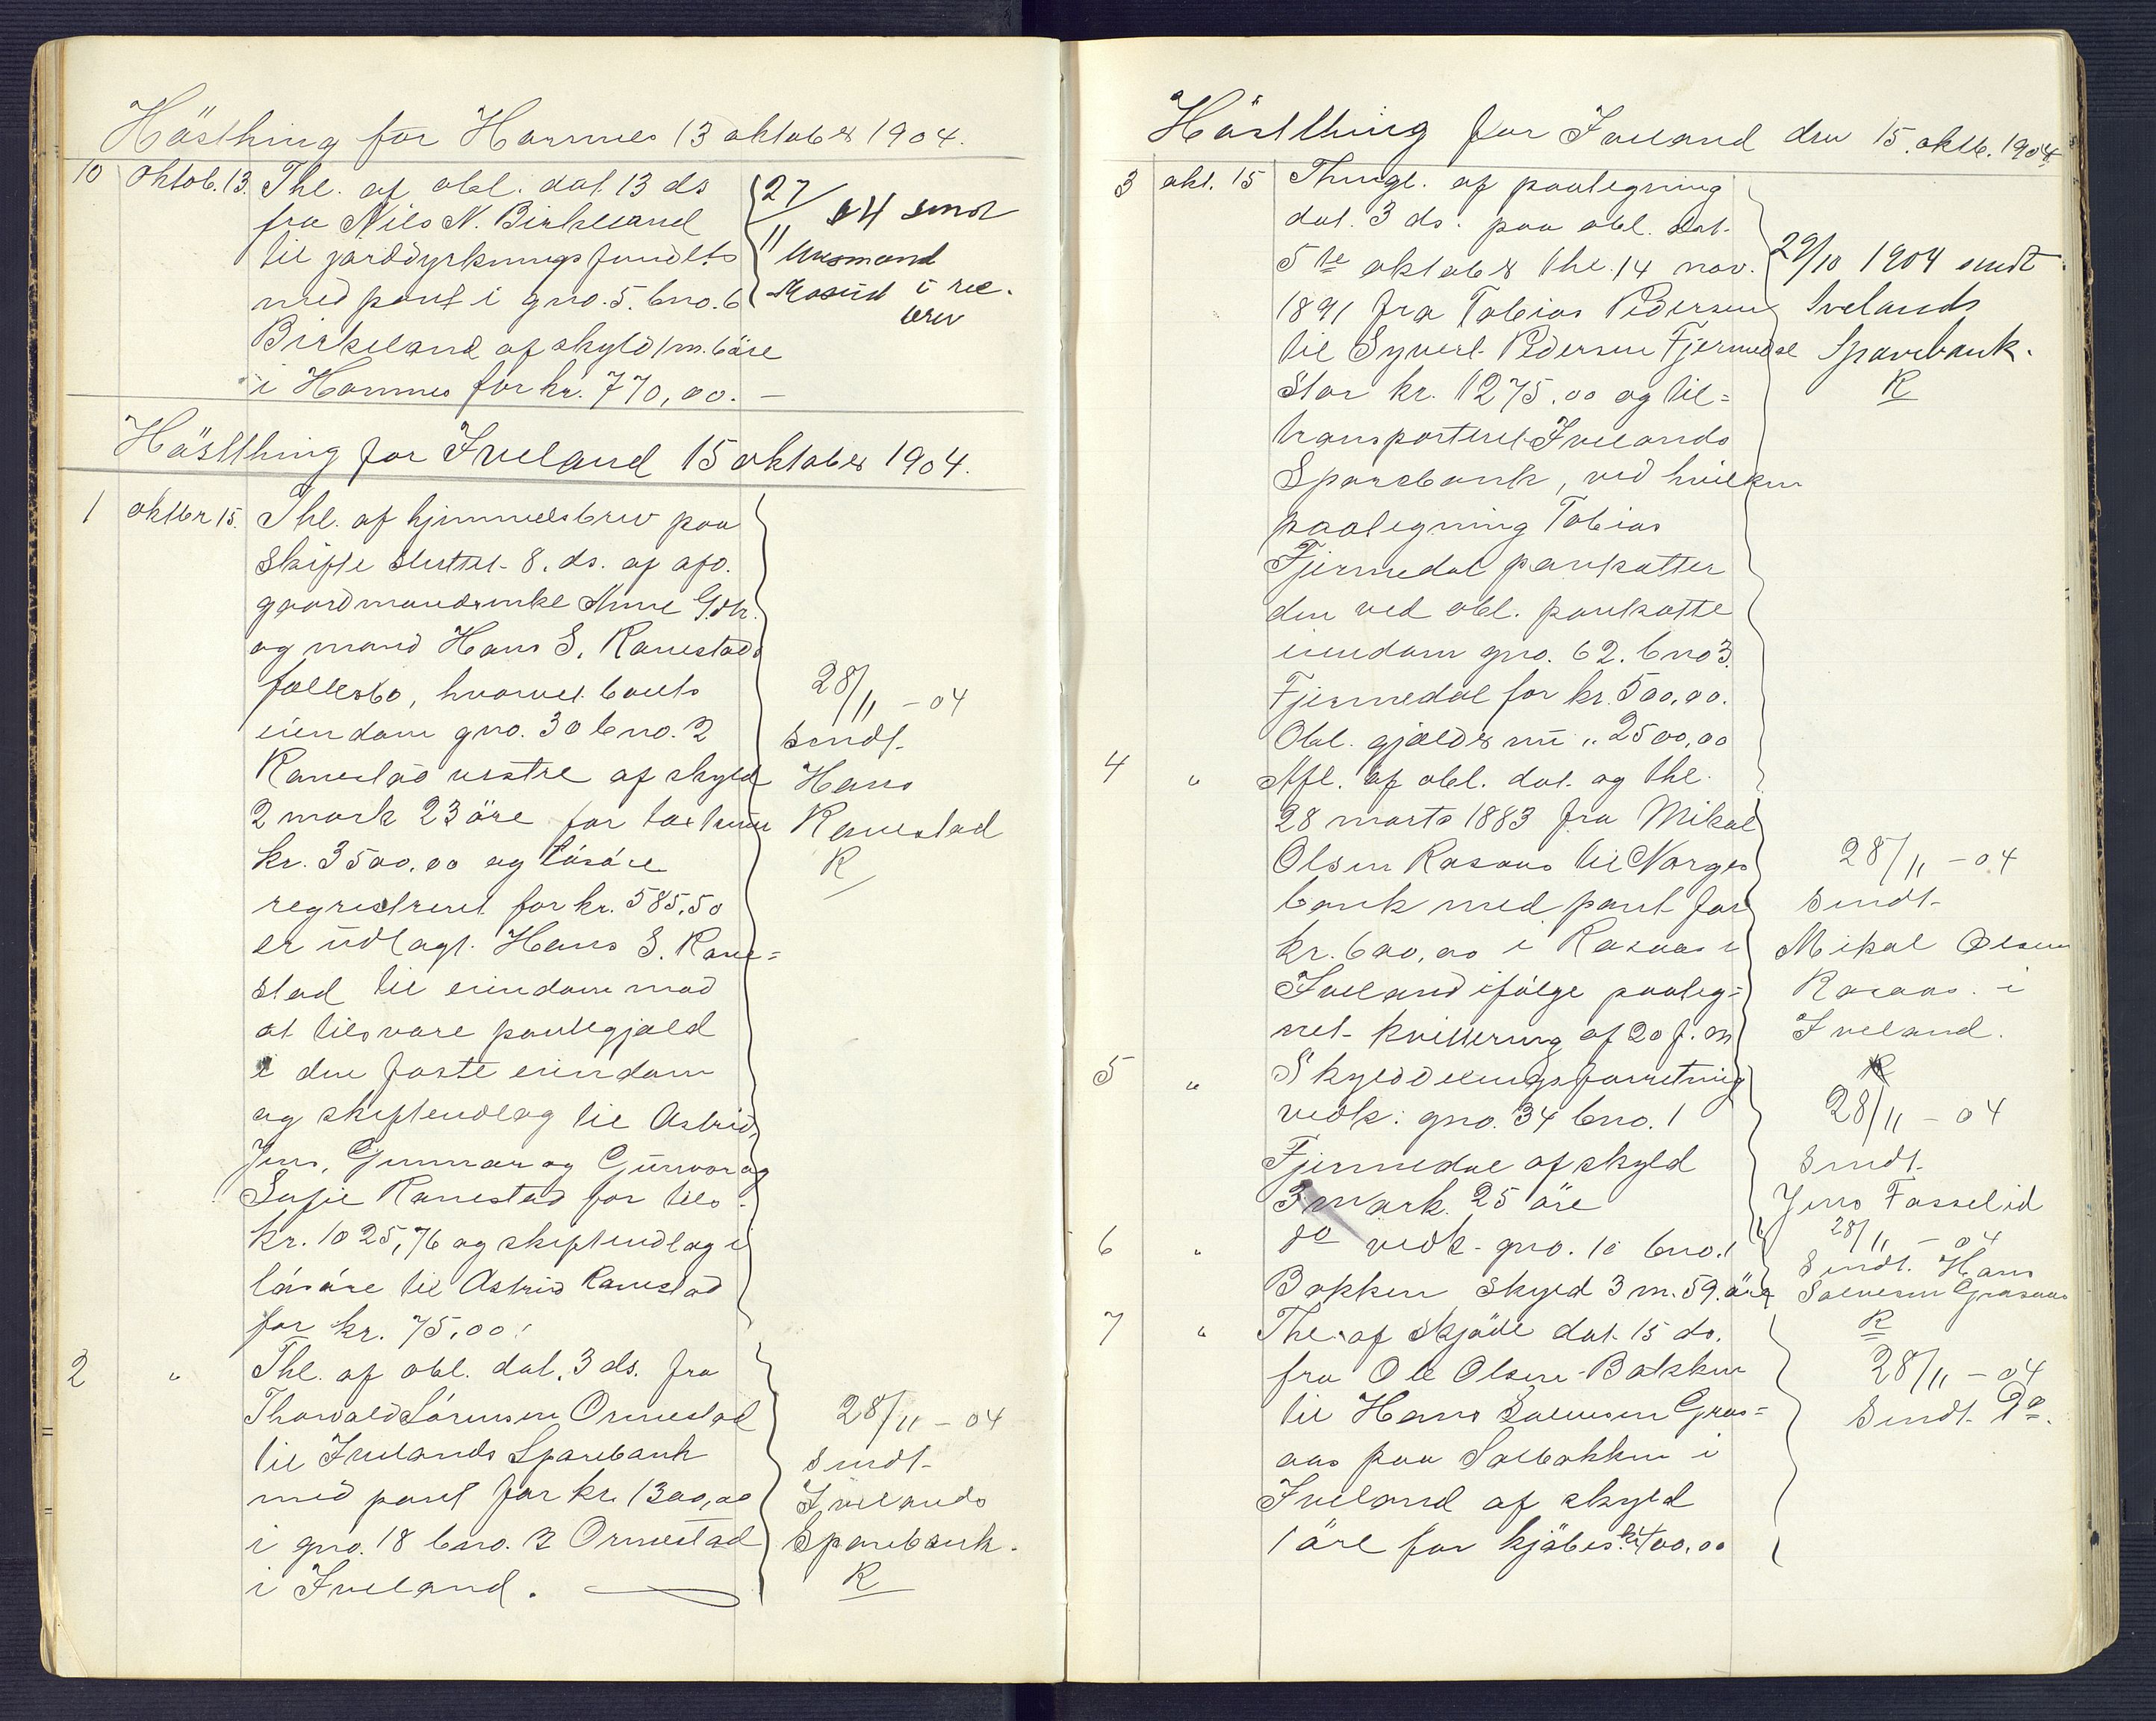 Hösthing for Hornnes 13 oktober 1904.
10 oktob. 13. Thl. af obl. dat. 13 ds
fra Nils N. Birkeland
til jorddyrkningsfondets
med pant i gno. 5. bno. 6
Birkeland af skyld 1 m. 6 öre
i Hornnes for kr. 770,00. —
27/11 04 sendt
Uksmand
Mosid i rec.
brev
Hösthing for Iveland 15 oktober 1904.
1 oktbr 15. Thl. af hjemmelsbrev paa
skifte sluttet 8. ds. af afd.
gaardmandsenke Anne G.dtr.
og mand Hans S. Ranestads
fællesbo, hvorved boets
eiendom gno. 30 bno. 2
Ranestad vestre af skyld
2 mark 23 öre for taxtsum
kr. 3500,00 og lösöre
registreret for kr. 585,50
er udlagt Hans S. Rane=
stad til eiendom mod
at tilsvare pantegjæld
i den faste eiendom
og skifteudlæg til Astrid,
Jens, Gunnar og Gunvor og
Sofie Ranestad for tils.
kr. 1025,76 og skifteudlæg i
lösöre til Astrid Ranestad
for kr. 75,00.
28/11 – 04
sendt
Hans
Ranestad
R
2 " Thl. af obl. dat. 3 ds. fra
Thorvald Sörensen Ormestad
til Ivelands Sparebank
med pant for kr. 1300,00
i gno. 18 bno. 2 Ormestad
i Iveland.
28/11 – 04
sendt
Ivelands
Sparebank.
R
Hösthing for Iveland den 15. oktb. 1904.
3 okt. 15 Thingl. af paategning
dat. 3 ds. paa obl. dat.
5te oktober thl. 14 nov.
1891 fra Tobias Pedersen
til Syvert Pedersen Fjermedal
stor kr. 1275,00 og til=
transporteret Ivelands
Sparebank, ved hvilken
paategning Tobias
Fjermedal pantsætter
den ved obl. pantsatte
eiendom gno. 62. bno 3.
Fjermedal for kr. 500,00.
Obl. gjælder nu „ 2500,00
29/10 1904 sendt
Ivelands
Sparebank.
R
4 " Afl. af obl. dat. og thl.
28 marts 1883 fra Mikal
Olsen Rosaas til Norges
bank med pant for
kr. 600,00 i Rosaas i
Iveland ifölge paateg=
net kvittering af 20 f. m
28/11 – 04
sendt
Mikal Olsen
Rosaas i
Iveland.
R
5 " Skylddelingsforretning
vedk: gno. 34 bno. 1
Fjermedal af skyld
3 mark 25 öre
28/11 – 04
sendt
Jens Fosselid
6 " do vedk. gno. 10 bno. 1
Bakken skyld 3 m. 59. öre
28/11 – 04
Sendt. Hans
Salvesen Grosaas
R
7 " Thl. af skjöde dat. 15 ds.
fra Ole Olsen Bakken
til Hans Salvesen Gros=
aas paa Solbakken i
Iveland af skyld
1 öre for kjöbes. kr. 400,00
28/11 – 04
Sendt. Do.